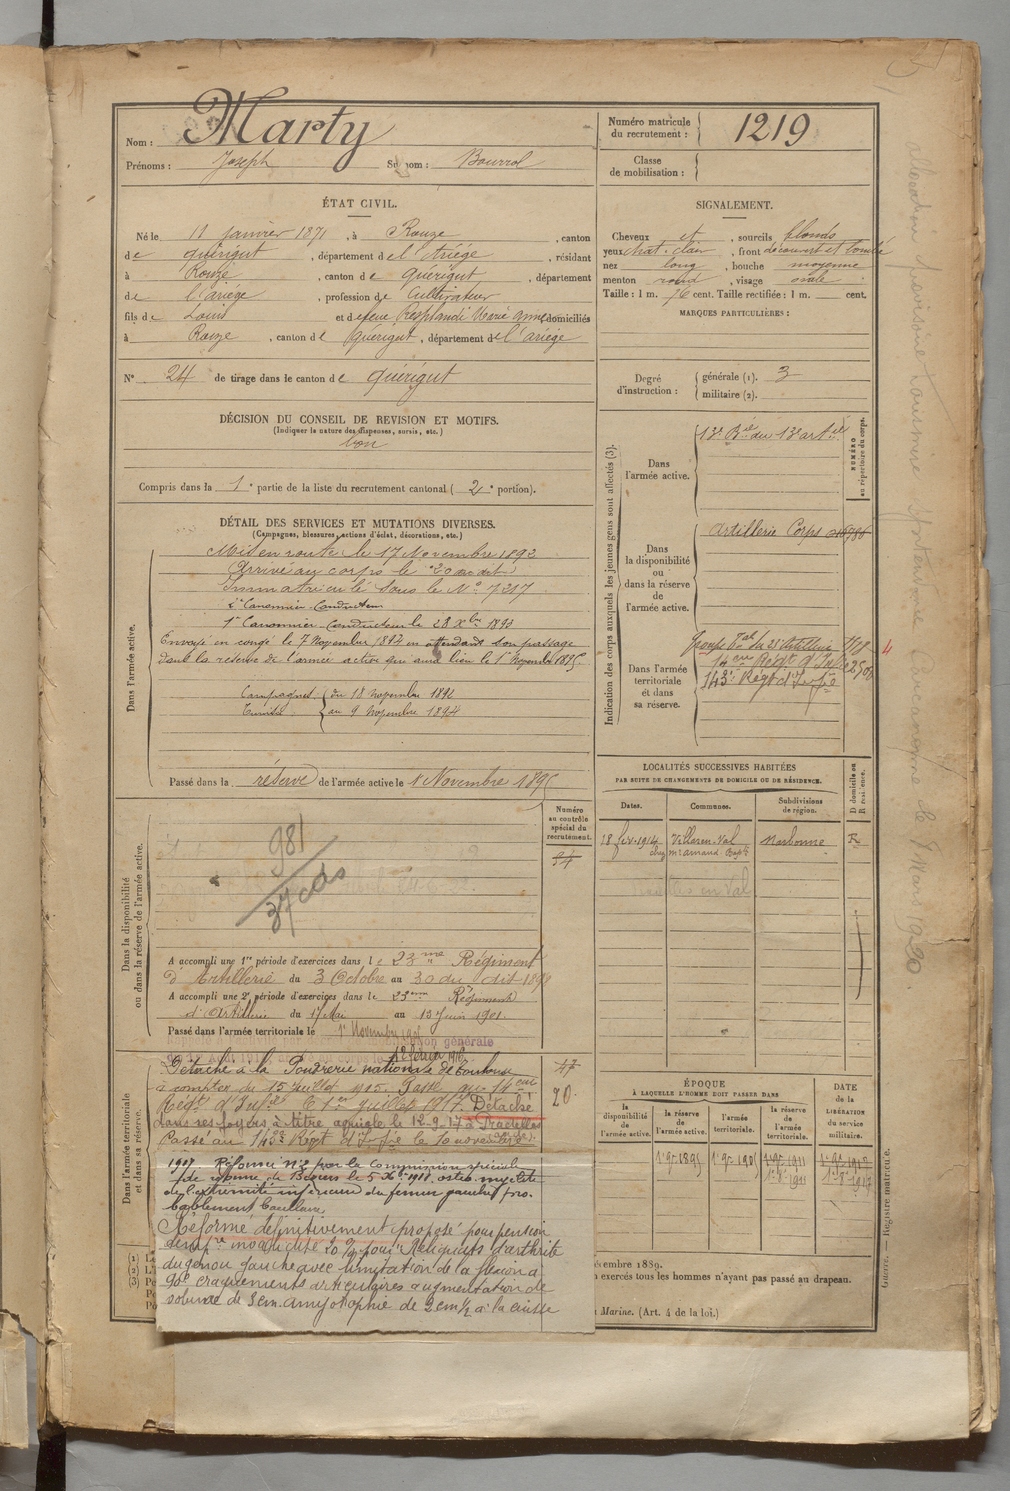 Nom : Marty
Prénoms : Joseph Surnom : Bourrol
Numéro matricule du recrutement : 1219
Classe de mobilisation :
ÉTAT CIVIL.
Né le 11 janvier 1871, à Rouze, canton
de quérigut, département de l'Ariège, résidant
à Rouze, canton de Quérigut, département
de l'ariège, profession de Cultivateur
fils de Louis et de feue Resplandi Marie anne, domiciliés
à Rouze, canton de Quérigut, département de l'ariège
N° 24 de tirage dans le canton de quérigut
SIGNALEMENT.
Cheveux et, sourcils blonds
yeux chat. clair, front découvert et bombé
nez long, bouche moyenne
menton rond, visage ovale
Taille : 1 m. 76 cent. Taille rectifiée : 1 m. cent.
MARQUES PARTICULIÈRES :
Degré d'instruction : générale (1). 3
militaire (2).
DÉCISION DU CONSEIL DE REVISION ET MOTIFS.
(Indiquer la nature des dispenses, sursis, etc.)
bon
Compris dans la 1e partie de la liste du recrutement cantonal (2e portion).
DÉTAIL DES SERVICES ET MUTATIONS DIVERSES.
(Campagnes, blessures, actions d'éclat, décorations, etc.)
Dans l'armée active.
Mis en route le 17 Novembre 1892
Arrivé au corps le 20 du dit
Immatriculé sous le N° 7217
2e Canonnier-Conducteur
1er Canonnier-Conducteur le 28 Xbre 1893
Envoyé en congé le 7 Novembre 1892 en attendant son passage
dans la réserve de l'armée active qui aura lieu le 1er Novembre 1895
Campagnes du 18 novembre 1892
Tunisie au 9 Novembre 1894
Passé dans la réserve de l'armée active le 1 Novembre 1895
Indication des corps auxquels les jeunes gens sont affectés (3).
NUMÉRO au répertoire du corps.
Dans l'armée active.
13e Bie du 13e artie
Dans la disponibilité ou dans la réserve de l'armée active.
Artillerie Corps
Dans l'armée territoriale et dans sa réserve.
Groupe Tal du 21e Artillerie
14eme Régt d'Infie
143e Régt d'Infie
4
LOCALITÉS SUCCESSIVES HABITÉES
PAR SUITE DE CHANGEMENTS DE DOMICILE OU DE RÉSIDENCE.
Dates. Communes. Subdivisions de région. D domicile ou R résidence.
18 fév. 1914 Villar-en-Val Narbonne R
Dans la disponibilité ou dans la réserve de l'armée active.
Numéro au contrôle spécial du recrutement.
981
37 cds
A accompli une 1re période d'exercices dans le 23me Régiment
d'Artillerie du 3 Octobre au 30 du dit 1898
A accompli une 2e période d'exercices dans le 23eme Régiment
d'Artillerie du 17 Mai au 13 Juin 1901.
Passé dans l'armée territoriale le 1er Novembre 1905
Dans l'armée territoriale et dans sa réserve.
Détaché à la Poudrerie nationale de Toulouse
à compter du 15 Juillet 1915. Passé au 14eme
Régt d'Infie le 1er Juillet 1917. Détaché
dans ses foyers à titre agricole le 12-9-17 à Pradelles
Passé au 143e Régt d'Infie le 10 novembre
20
1917. Réformé n°2 par la Commission spéciale
de réforme de Béziers le 5 Xbre 1918 ostéo-myélite
de l'extrémité inférieure du fémur gauche pro-
bablement bacillaire
Réformé définitivement proposé pour pension
tempre invalidité 20 % pour : Reliquats d'arthrite
du genou gauche avec limitation de la flexion à
90° craquements articulaires augmentation de
volume de 3 cm. amyotrophie de 2 cm ½ à la cuisse
ÉPOQUE
À LAQUELLE L'HOMME DOIT PASSER DANS
la disponibilité de l'armée active. la réserve de l'armée active. l'armée territoriale. la réserve de l'armée territoriale.
DATE DE LA LIBÉRATION du service militaire.
1er 9bre 1895 1er 9bre 1905 1er 9bre 1911 1er 9bre 1917
écembre 1889.
exercés tous les hommes n'ayant pas passé au drapeau.
Marine. (Art. 4 de la loi.)
Guerre. — Registre matricule.